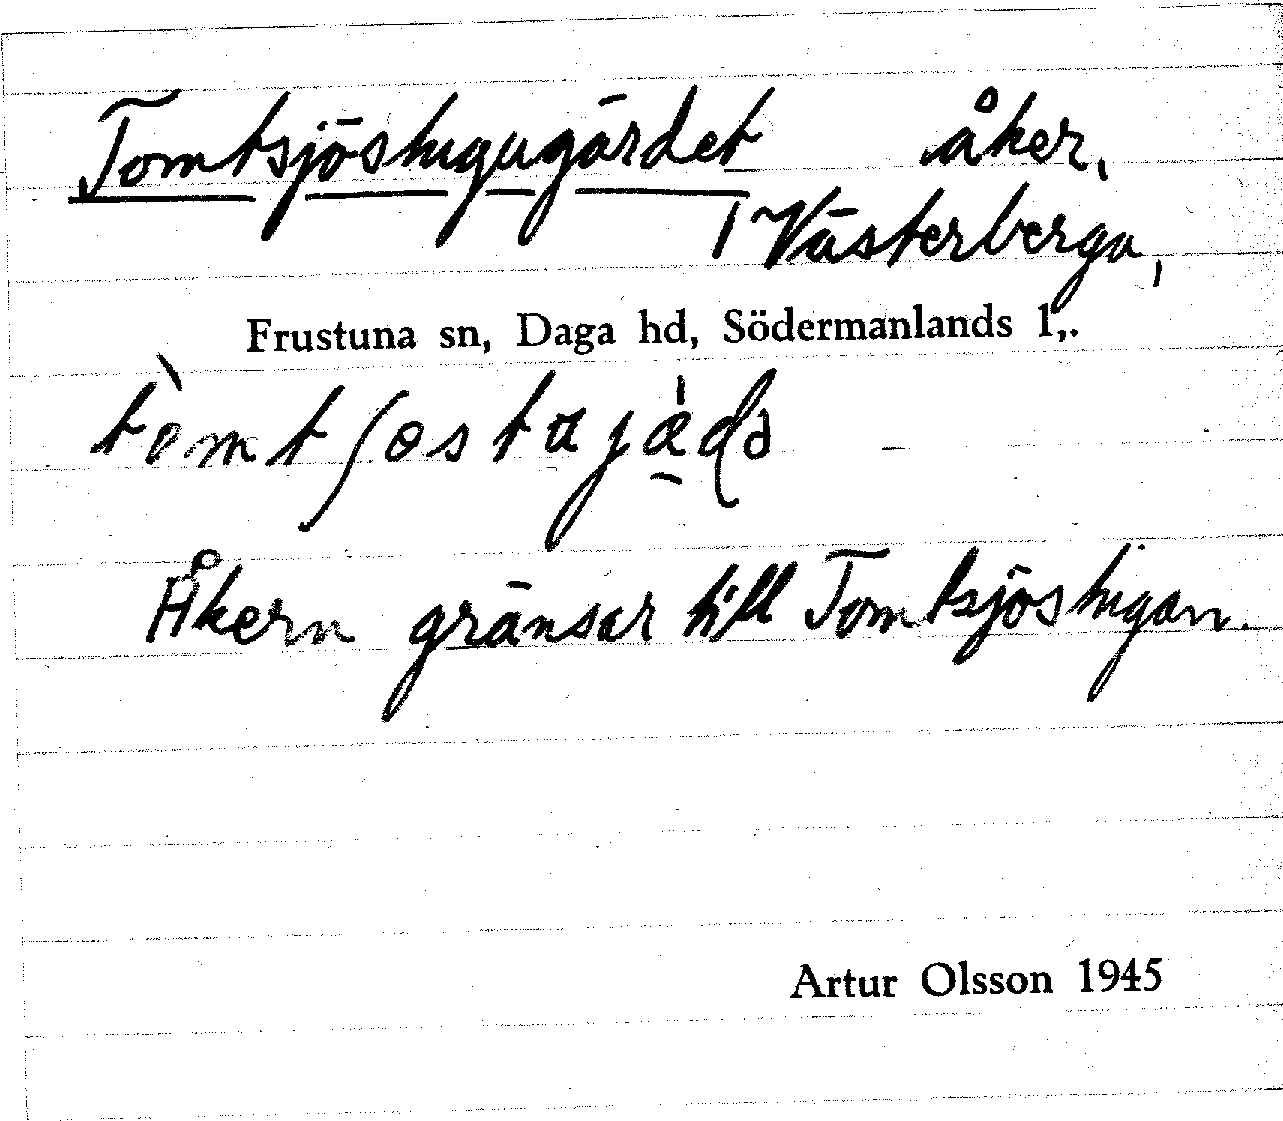 Tomtsjöstugugärdet åker,
i Västerberga,
Frustuna sn, Daga hd, Södermanlands l,.
Åkern gränsar till Tomtsjöstugan.
Artur Olsson 1945